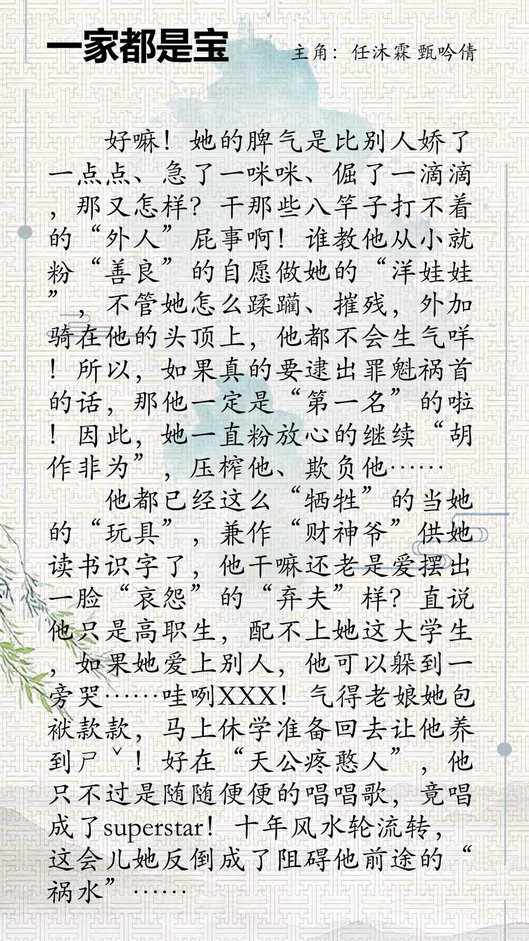 一家都是宝
主角：任沐霖 甄吟倩
好嘛！她的脾气是比别人娇了
一点点、急了一咪咪、倔了一滴滴
，那又怎样？干那些八竿子打不着
的“外人”屁事啊！谁教他从小就
粉“善良”的自愿做她的“洋娃娃
”，不管她怎么蹂躏、摧残，外加
骑在他的头顶上，他都不会生气咩
！所以，如果真的要逮出罪魁祸首
的话，那他一定是“第一名”的啦
！因此，她一直粉放心的继续“胡
作非为”，压榨他、欺负他……
他都已经这么“牺牲”的当她
的“玩具”，兼作“财神爷”供她
读书识字了，他干嘛还老是爱摆出
一脸“哀怨”的“弃夫”样？直说
他只是高职生，配不上她这大学生
，如果她爱上别人，他可以躲到一
旁哭……哇咧XXX！气得老娘她包
袱款款，马上休学准备回去让他养
到ㄕˇ！好在“天公疼憨人”，他
只不过是随随便便的唱唱歌，竟唱
成了superstar！十年风水轮流转，
这会儿她反倒成了阻碍他前途的“
祸水”……